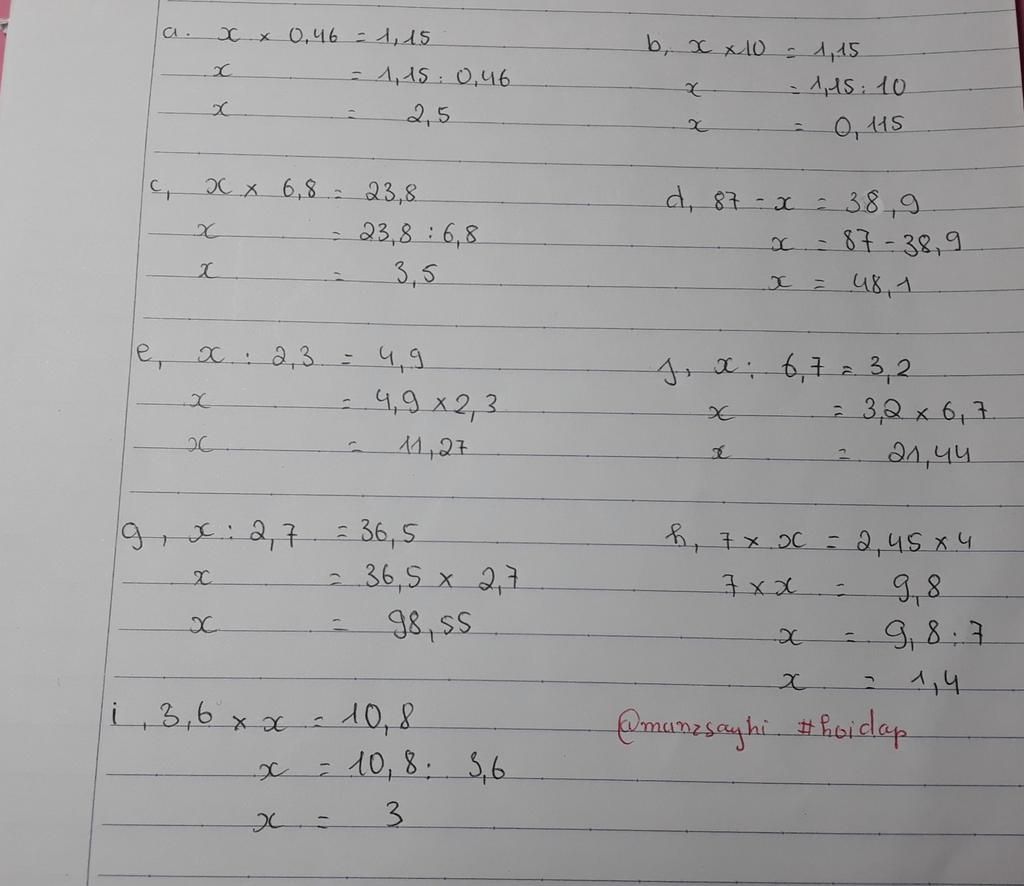 a. x × 0,46 = 1,15
x = 1,15 : 0,46
x = 2,5
b, x × 10 = 1,15
x = 1,15 : 10
x = 0,115
c, x × 6,8 = 23,8
x = 23,8 : 6,8
x = 3,5
d, 87 - x = 38,9
x = 87 - 38,9
x = 48,1
e, x : 2,3 = 4,9
x = 4,9 × 2,3
x = 11,27
f, x : 6,7 = 3,2
x = 3,2 × 6,7
x = 21,44
g, x : 2,7 = 36,5
x = 36,5 × 2,7
x = 98,55
h, 7 × x = 2,45 × 4
7 × x = 9,8
x = 9,8 : 7
x = 1,4
i, 3,6 × x = 10,8
x = 10,8 : 3,6
x = 3
@munzsayhi #hoidap